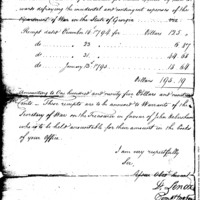 wards defraying the incidental and contingent expences of the
Department of War in the State of Georgia. Viz
Receipt dated December 16 1794 for Dollars 135 "
do 23
do 31
do January 13th 1795
Dollars 195.19
Amounting to One hundred and ninety five Dollars and nineteen
Cents. These receipts are to be annexed to Warrants of the
Secretary of War on the Treasurer in favour of John Habersham
who is to be held accountable for their amount in the books
of your Office.
I am very respectfully
Sir,
Your Obed. Servant